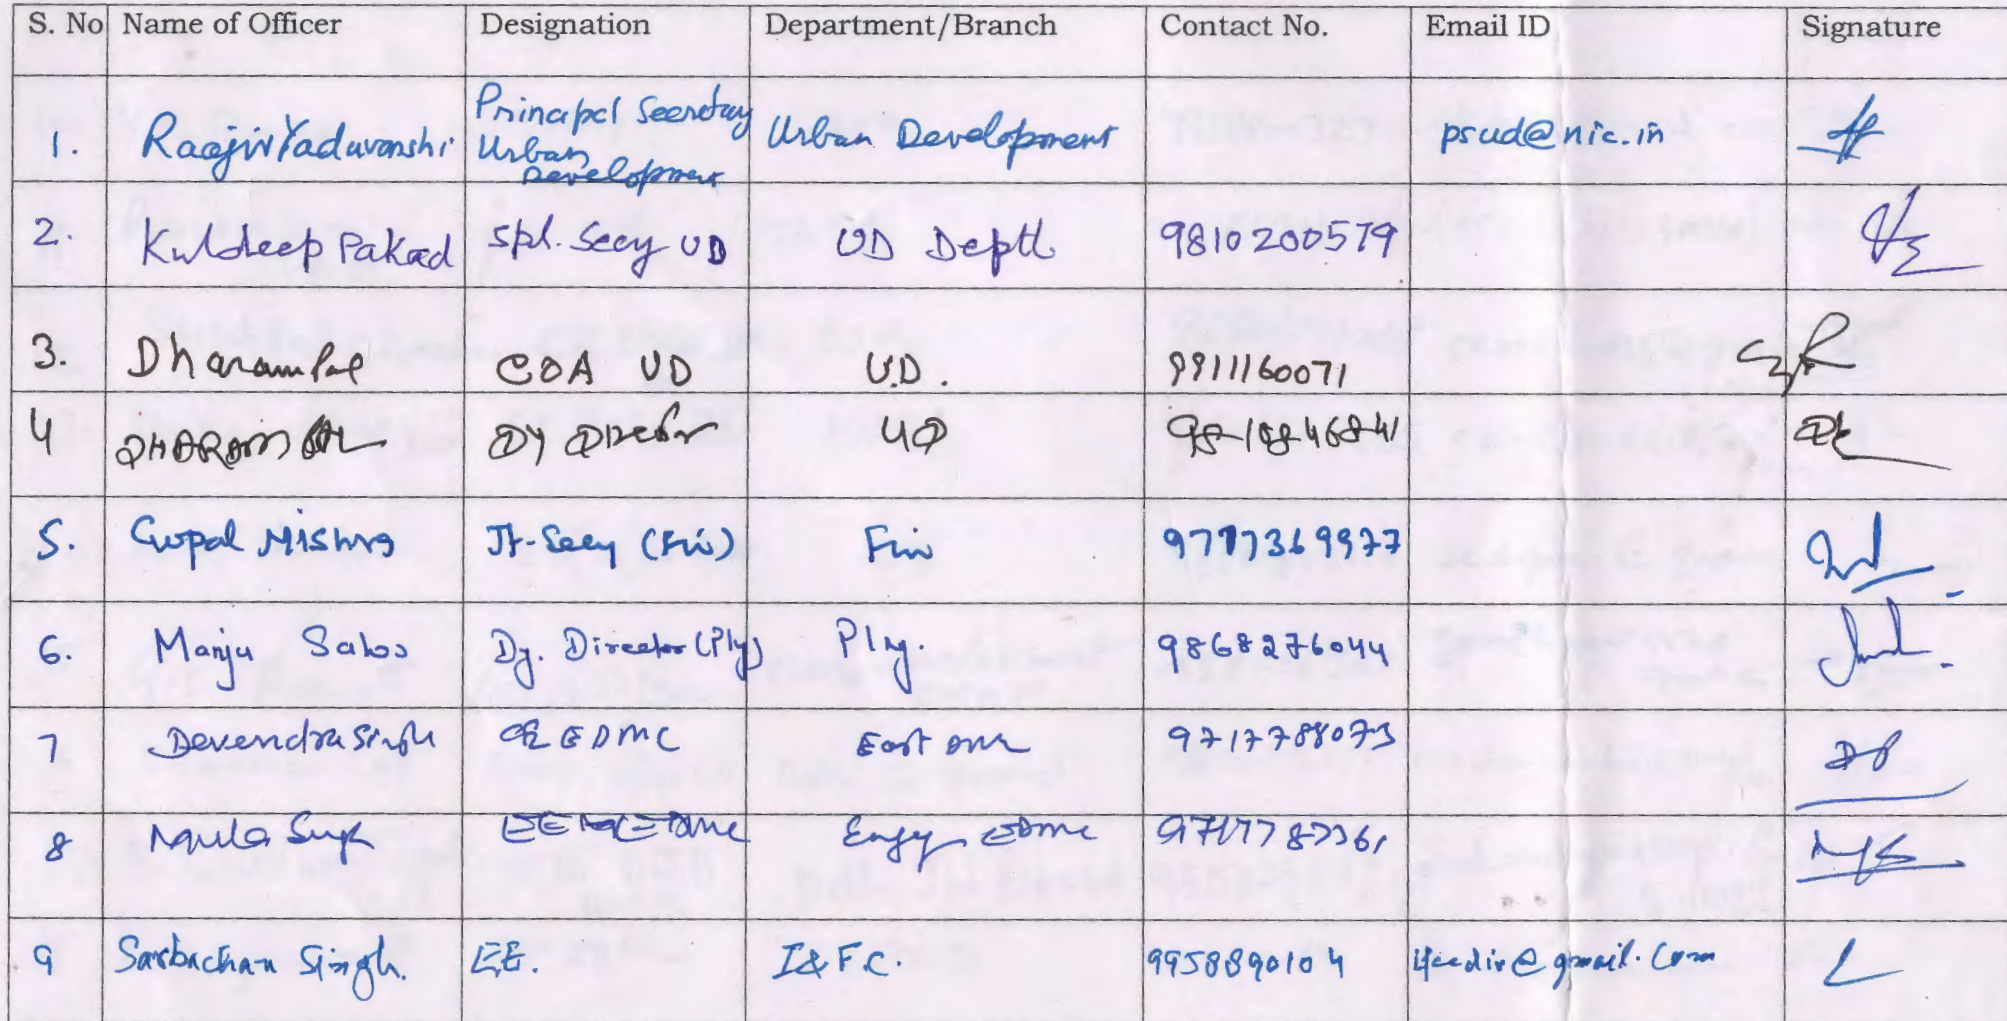 S. No Name of Officer Designation Department/Branch Contact No. Email ID Signature
1. Raajiv Yaduvanshi Principal Secretary Urban Development Urban Development psud@nic.in
2. Kuldeep Pakad Spl. Secy UD UD Deptt 9810200579
3. Dharampal COA UD U.D. 9911160071
4 DHARAM PAL DY Director UD
5. Gopal Mishra Jt-Secy (Fin) Fin
6. Manju Dy. Director (Plg) Plg. 9868276044
7 Devendra Singh EDMC East DMC 9717788073
8 Singh Engg EDMC
9 Sarbachan Singh. EE. I&F.C. 9958890104